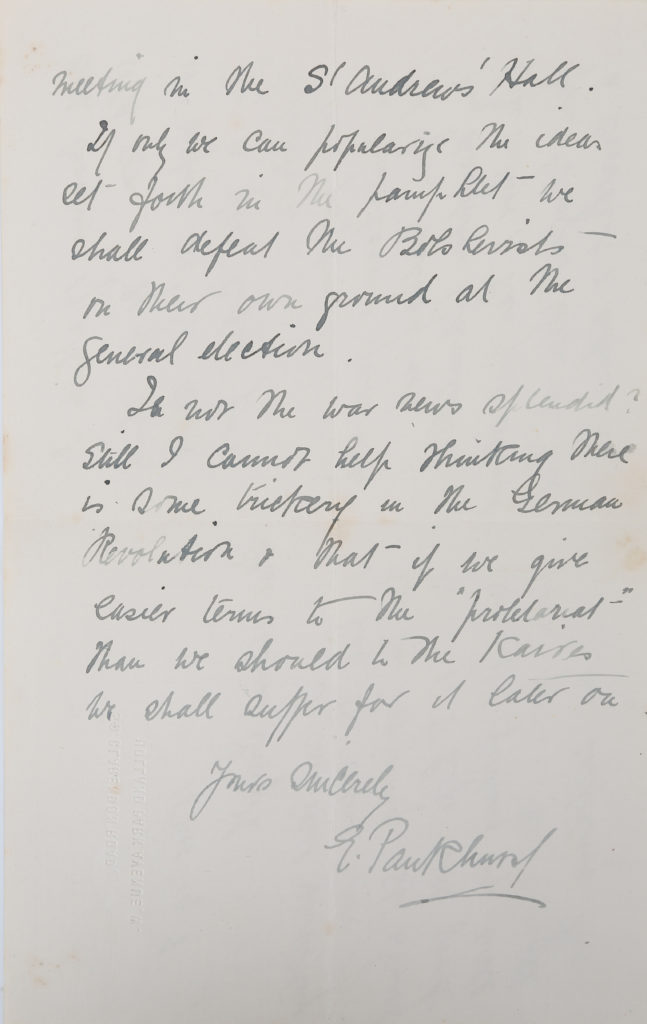 meeting in the St Andrews' Hall.
If only we can popularize the ideas
set forth in the pamphlet we
shall defeat the Bolshevists
on their own ground at the
general election.
Is not the war news splendid?
Still I cannot help thinking there
is some trickery in the German
Revolution & that if we give
easier terms to the "proletariat"
than we should to the Kaiser
we shall suffer for it later on
Yours sincerely
E. Pankhurst
HOLLAND PARK AVENUE W.